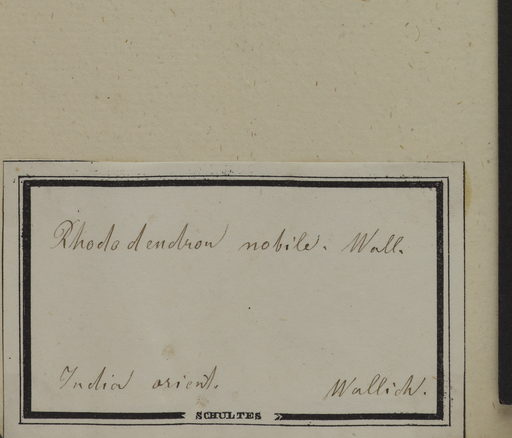 Rhododendron nobile. Wall.
India orient. Wallich.
SCHULTES